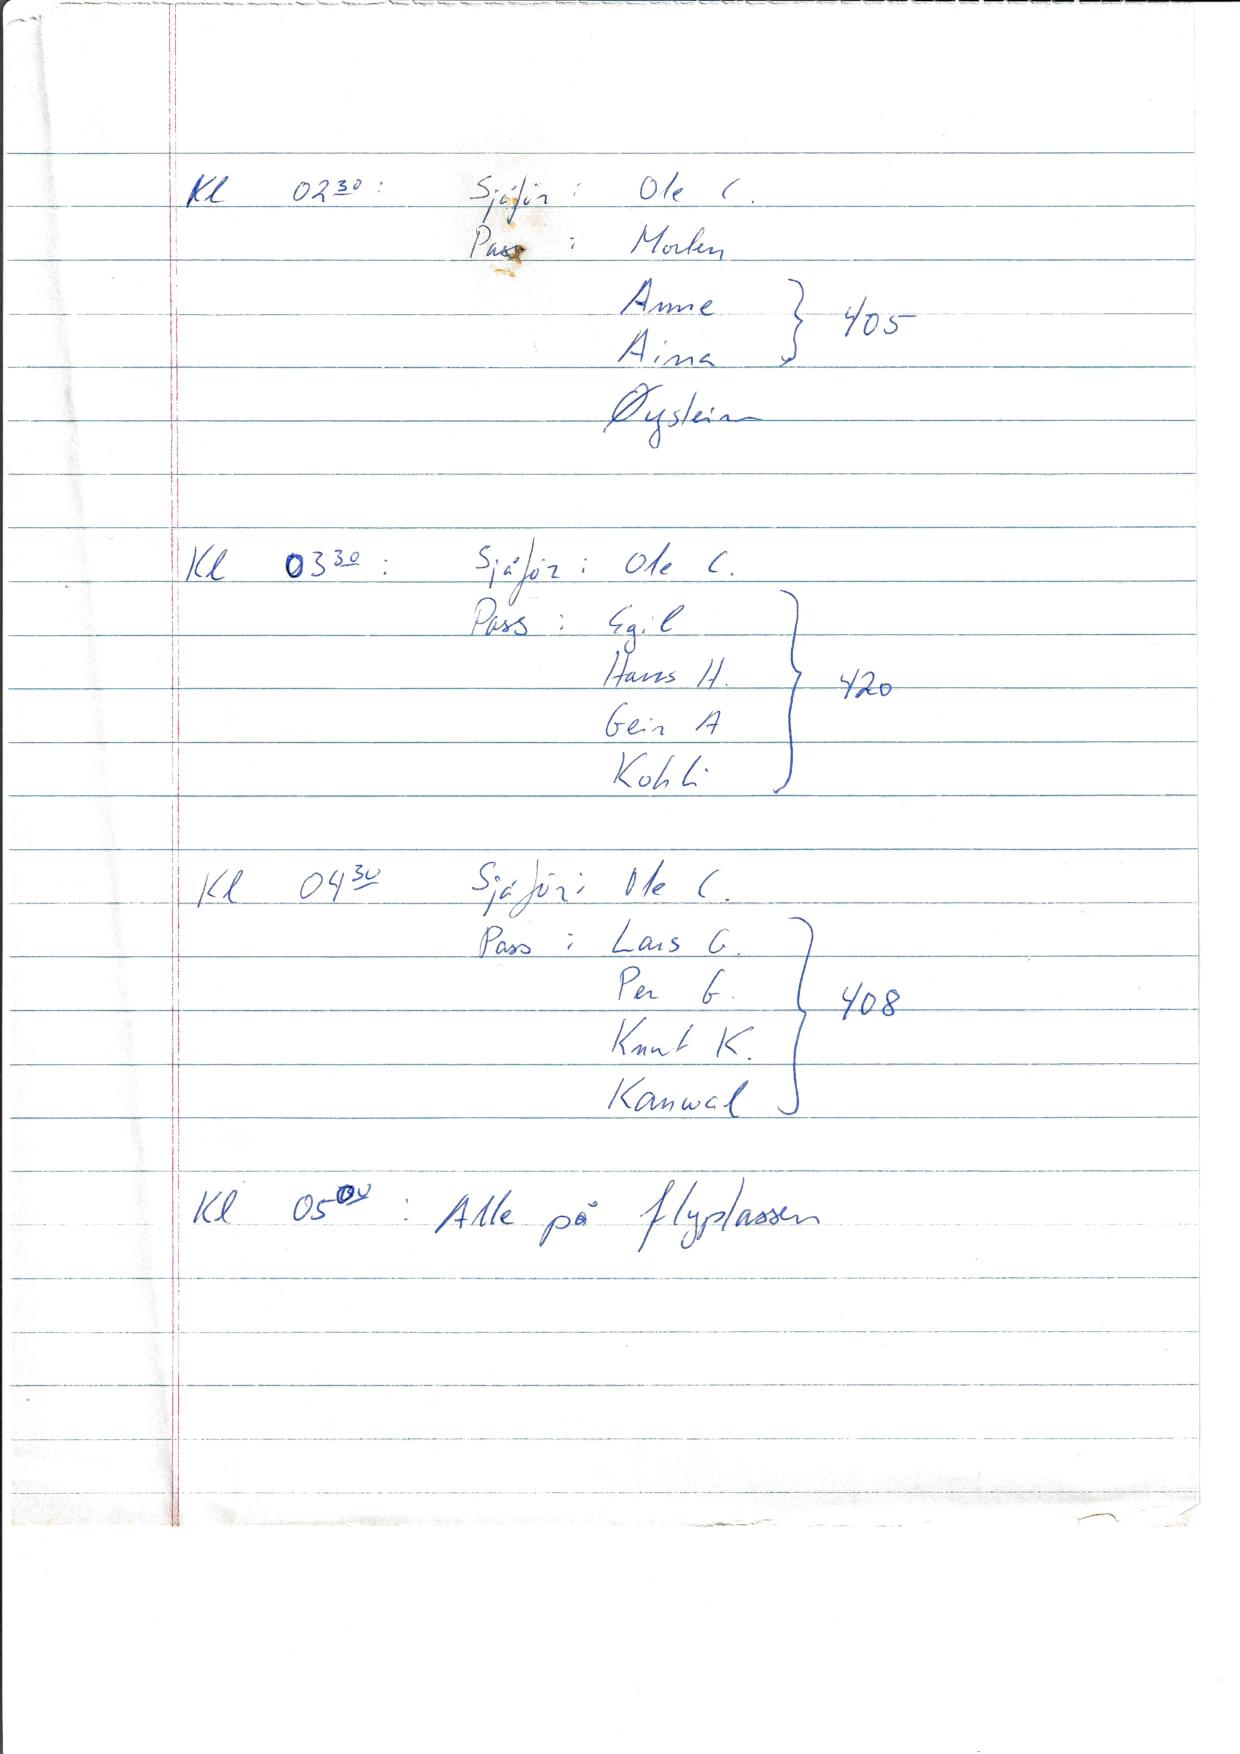 Kl 02³⁰: Sjåfør: Ole C.
Pass: Morten
Anne
405
Aina
Øystein
Kl 03³⁰: Sjåfør: Ole C.
Pass: Egil
Hans H.
420
Geir A
Kohli
Kl 04³⁰ Sjåfør: Ole C.
Pass: Lars G.
Per G.
408
Knut K.
Kanwal
Kl 05⁰⁰: Alle på flyplassen